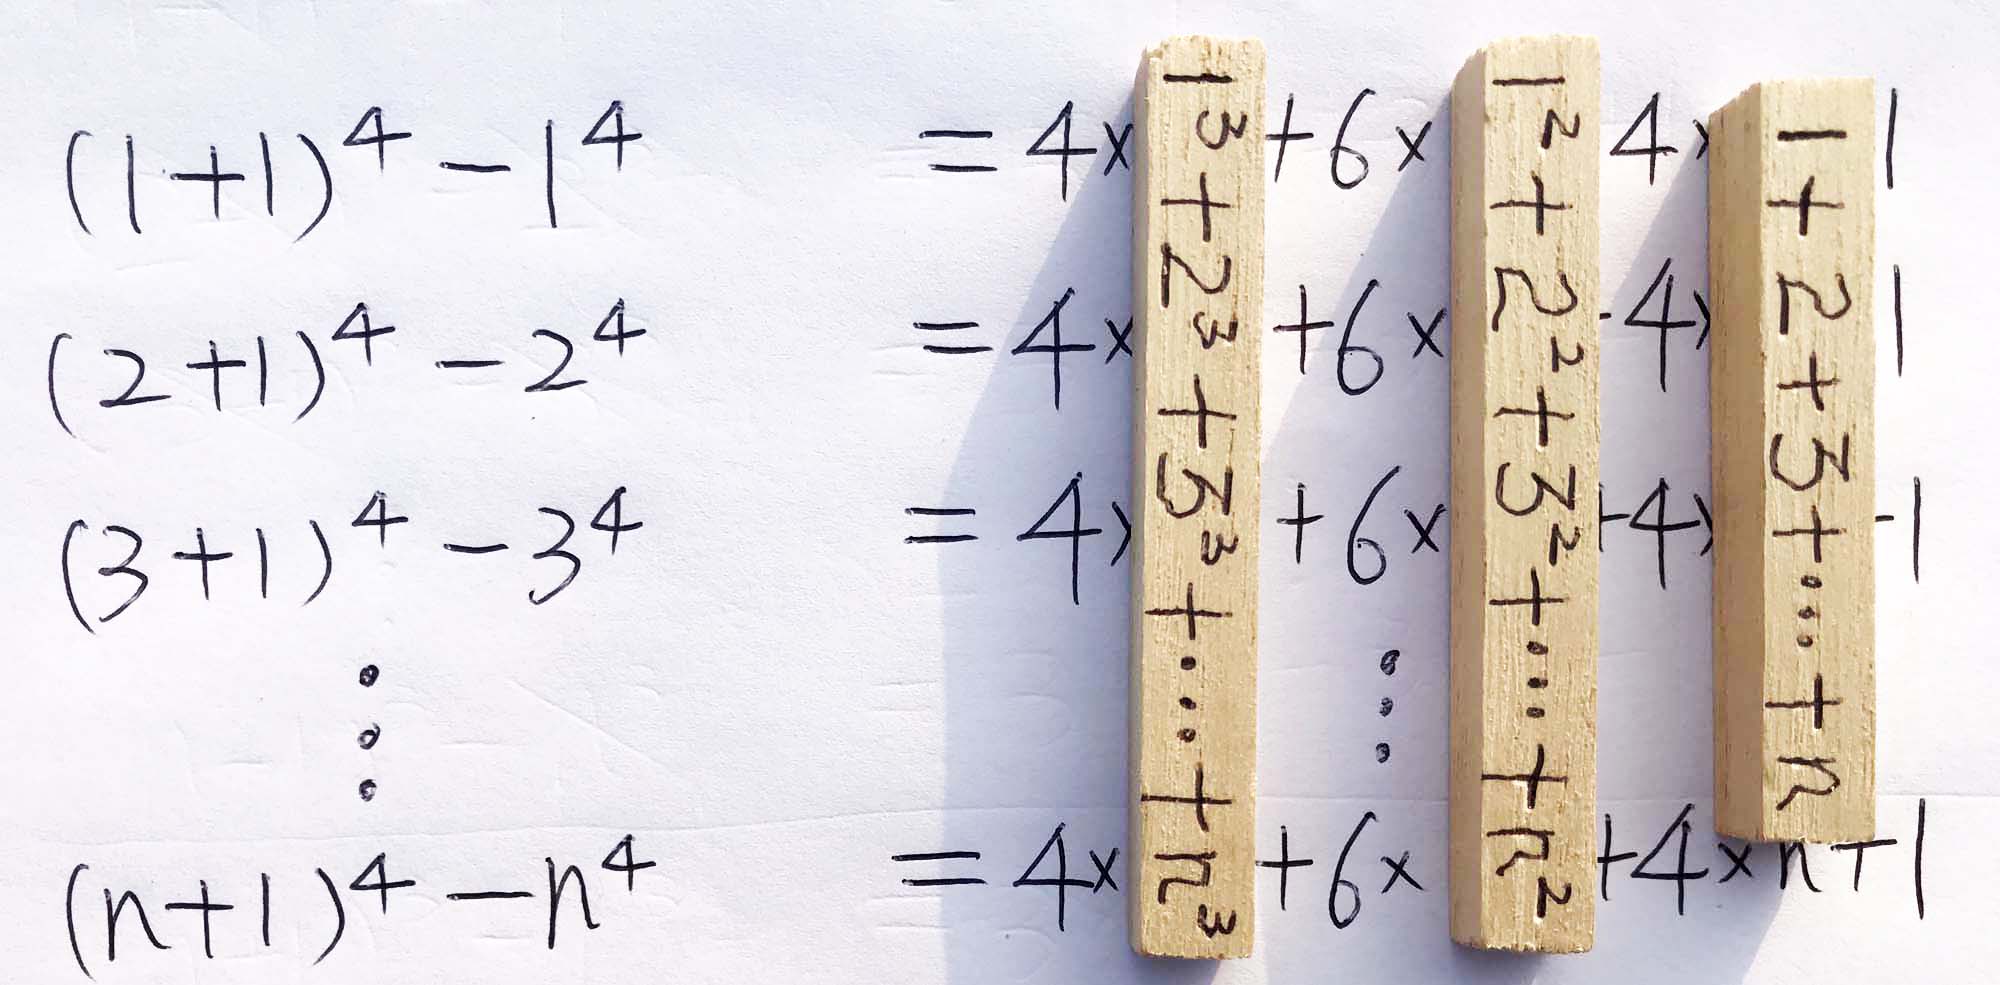 (1+1)⁴-1⁴ =4× +6× 4× 1
(2+1)⁴-2⁴ =4× +6× -4× 1
(3+1)⁴-3⁴ =4× +6× +4× -1
⋮ ⋮
(n+1)⁴-n⁴ =4× +6× +4×n+1
1³+2³+3³+…+n³
1²+2²+3²+…+n²
1+2+3+…+n